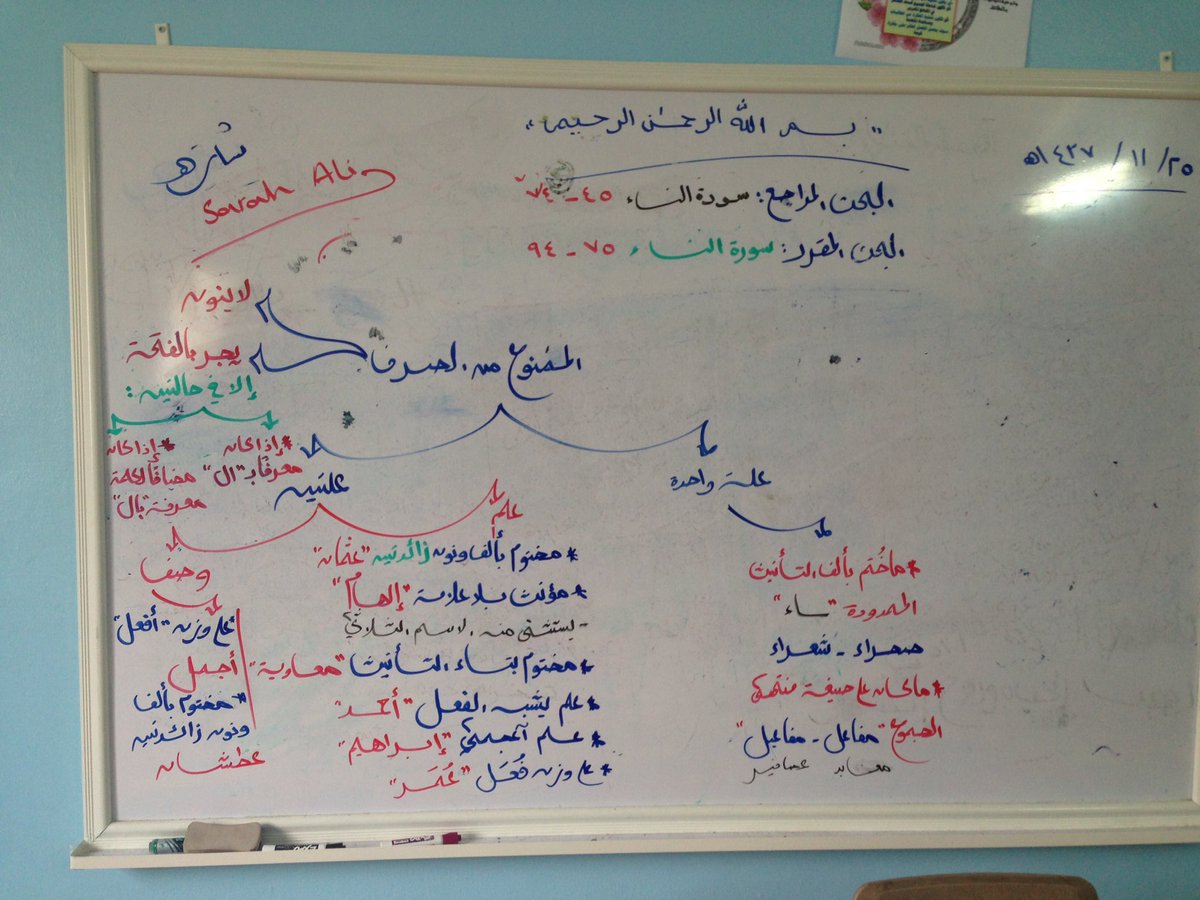 "بسم الله الرحمن الرحيم"
٢٥/ ١١ / ١٤٣٧هـ
سارة
Sarah Ali
البحث المراجع: سورة النساء ٤٥ - ٧٤
البحث المقرر: سورة النساء ٧٥ - ٩٤
الممنوع من الصرف
لا ينون
يجر بالفتحة
إلا في حالتين:
* إذا كان
معرفًا بـ "ال"
* إذا كان
مضافًا لكلمة
معرفة "بال"
علة واحدة
* ما خُتم بألف التأنيث
الممدودة "ـاء"
صحراء - شعراء
* ما كان على صيغة منتهى
الجموع "مفاعل - مفاعيل"
معابد عصافير
علتين
علم
* مختوم بألف ونون زائدتين "عثمان"
* مؤنث بلا علامة "إلهام"
- يستثنى منه الاسم الثلاثي
* مختوم بتاء التأنيث "معاوية"
* علم يشبه الفعل "أحمد"
* علم أعجمي "إبراهيم"
* على وزن فُعَل "عُمَر"
وصف
على وزن "أفعل"
أجمل
* مختوم بألف
ونون زائدتين
عطشان